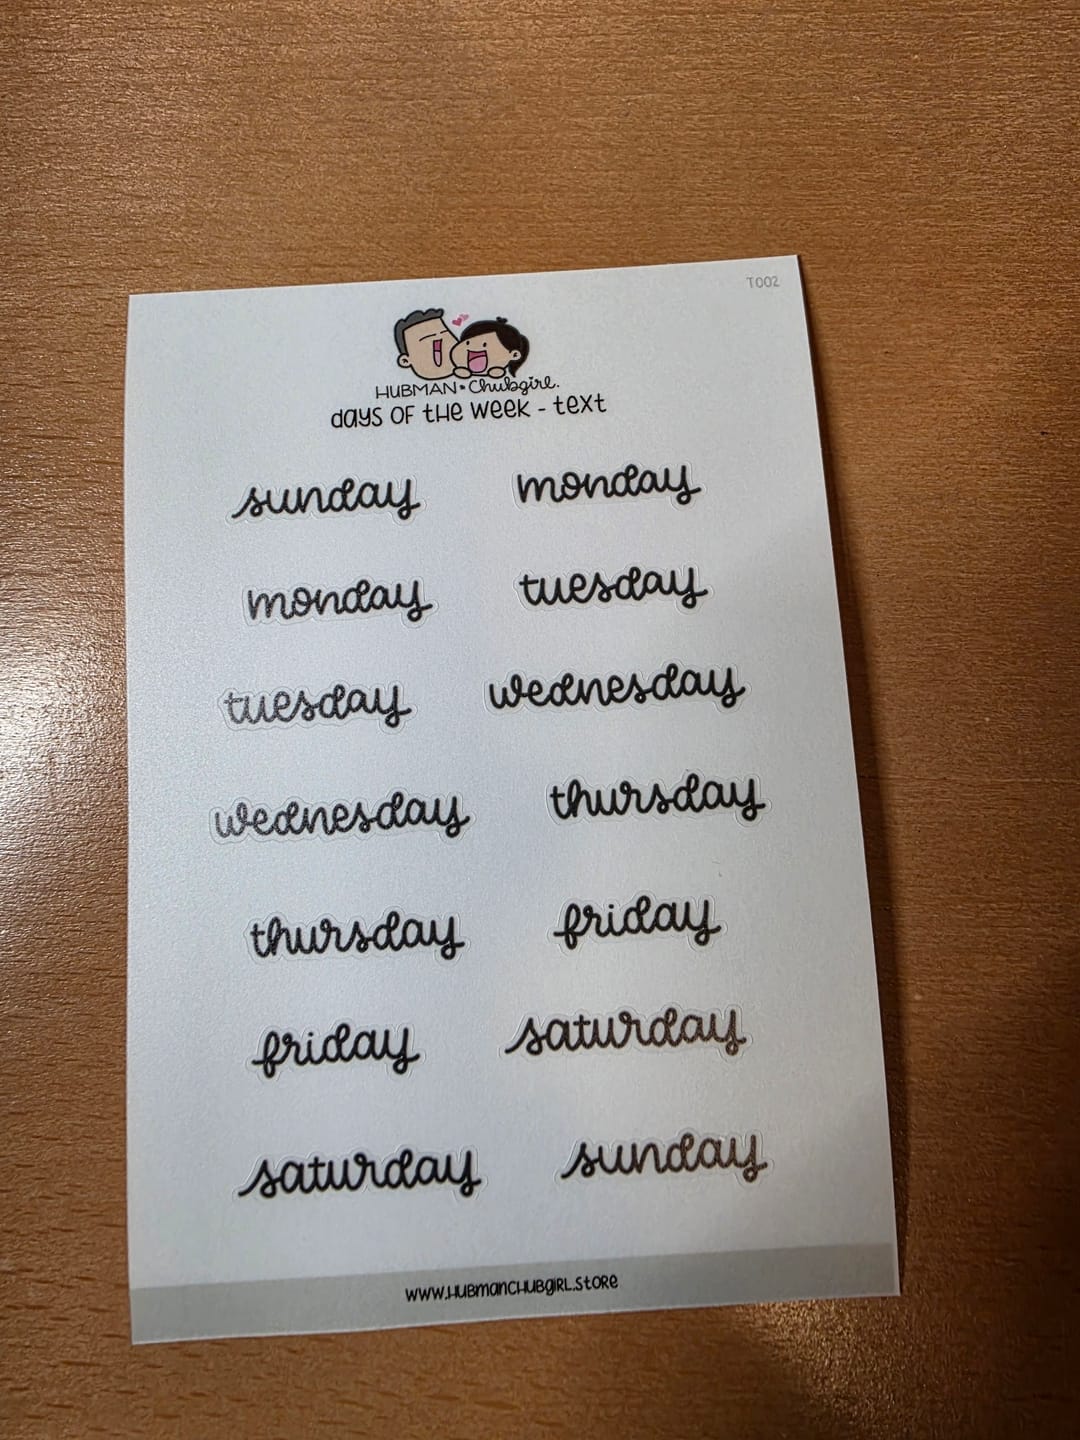 T002
HUBMAN • Chubgirl.
days OF tHE WEEK - tEXt
sunday monday
monday tuesday
tuesday wednesday
wednesday thursday
thursday friday
friday saturday
saturday sunday
WWW.HUBmanCHUBgiRL.StORE